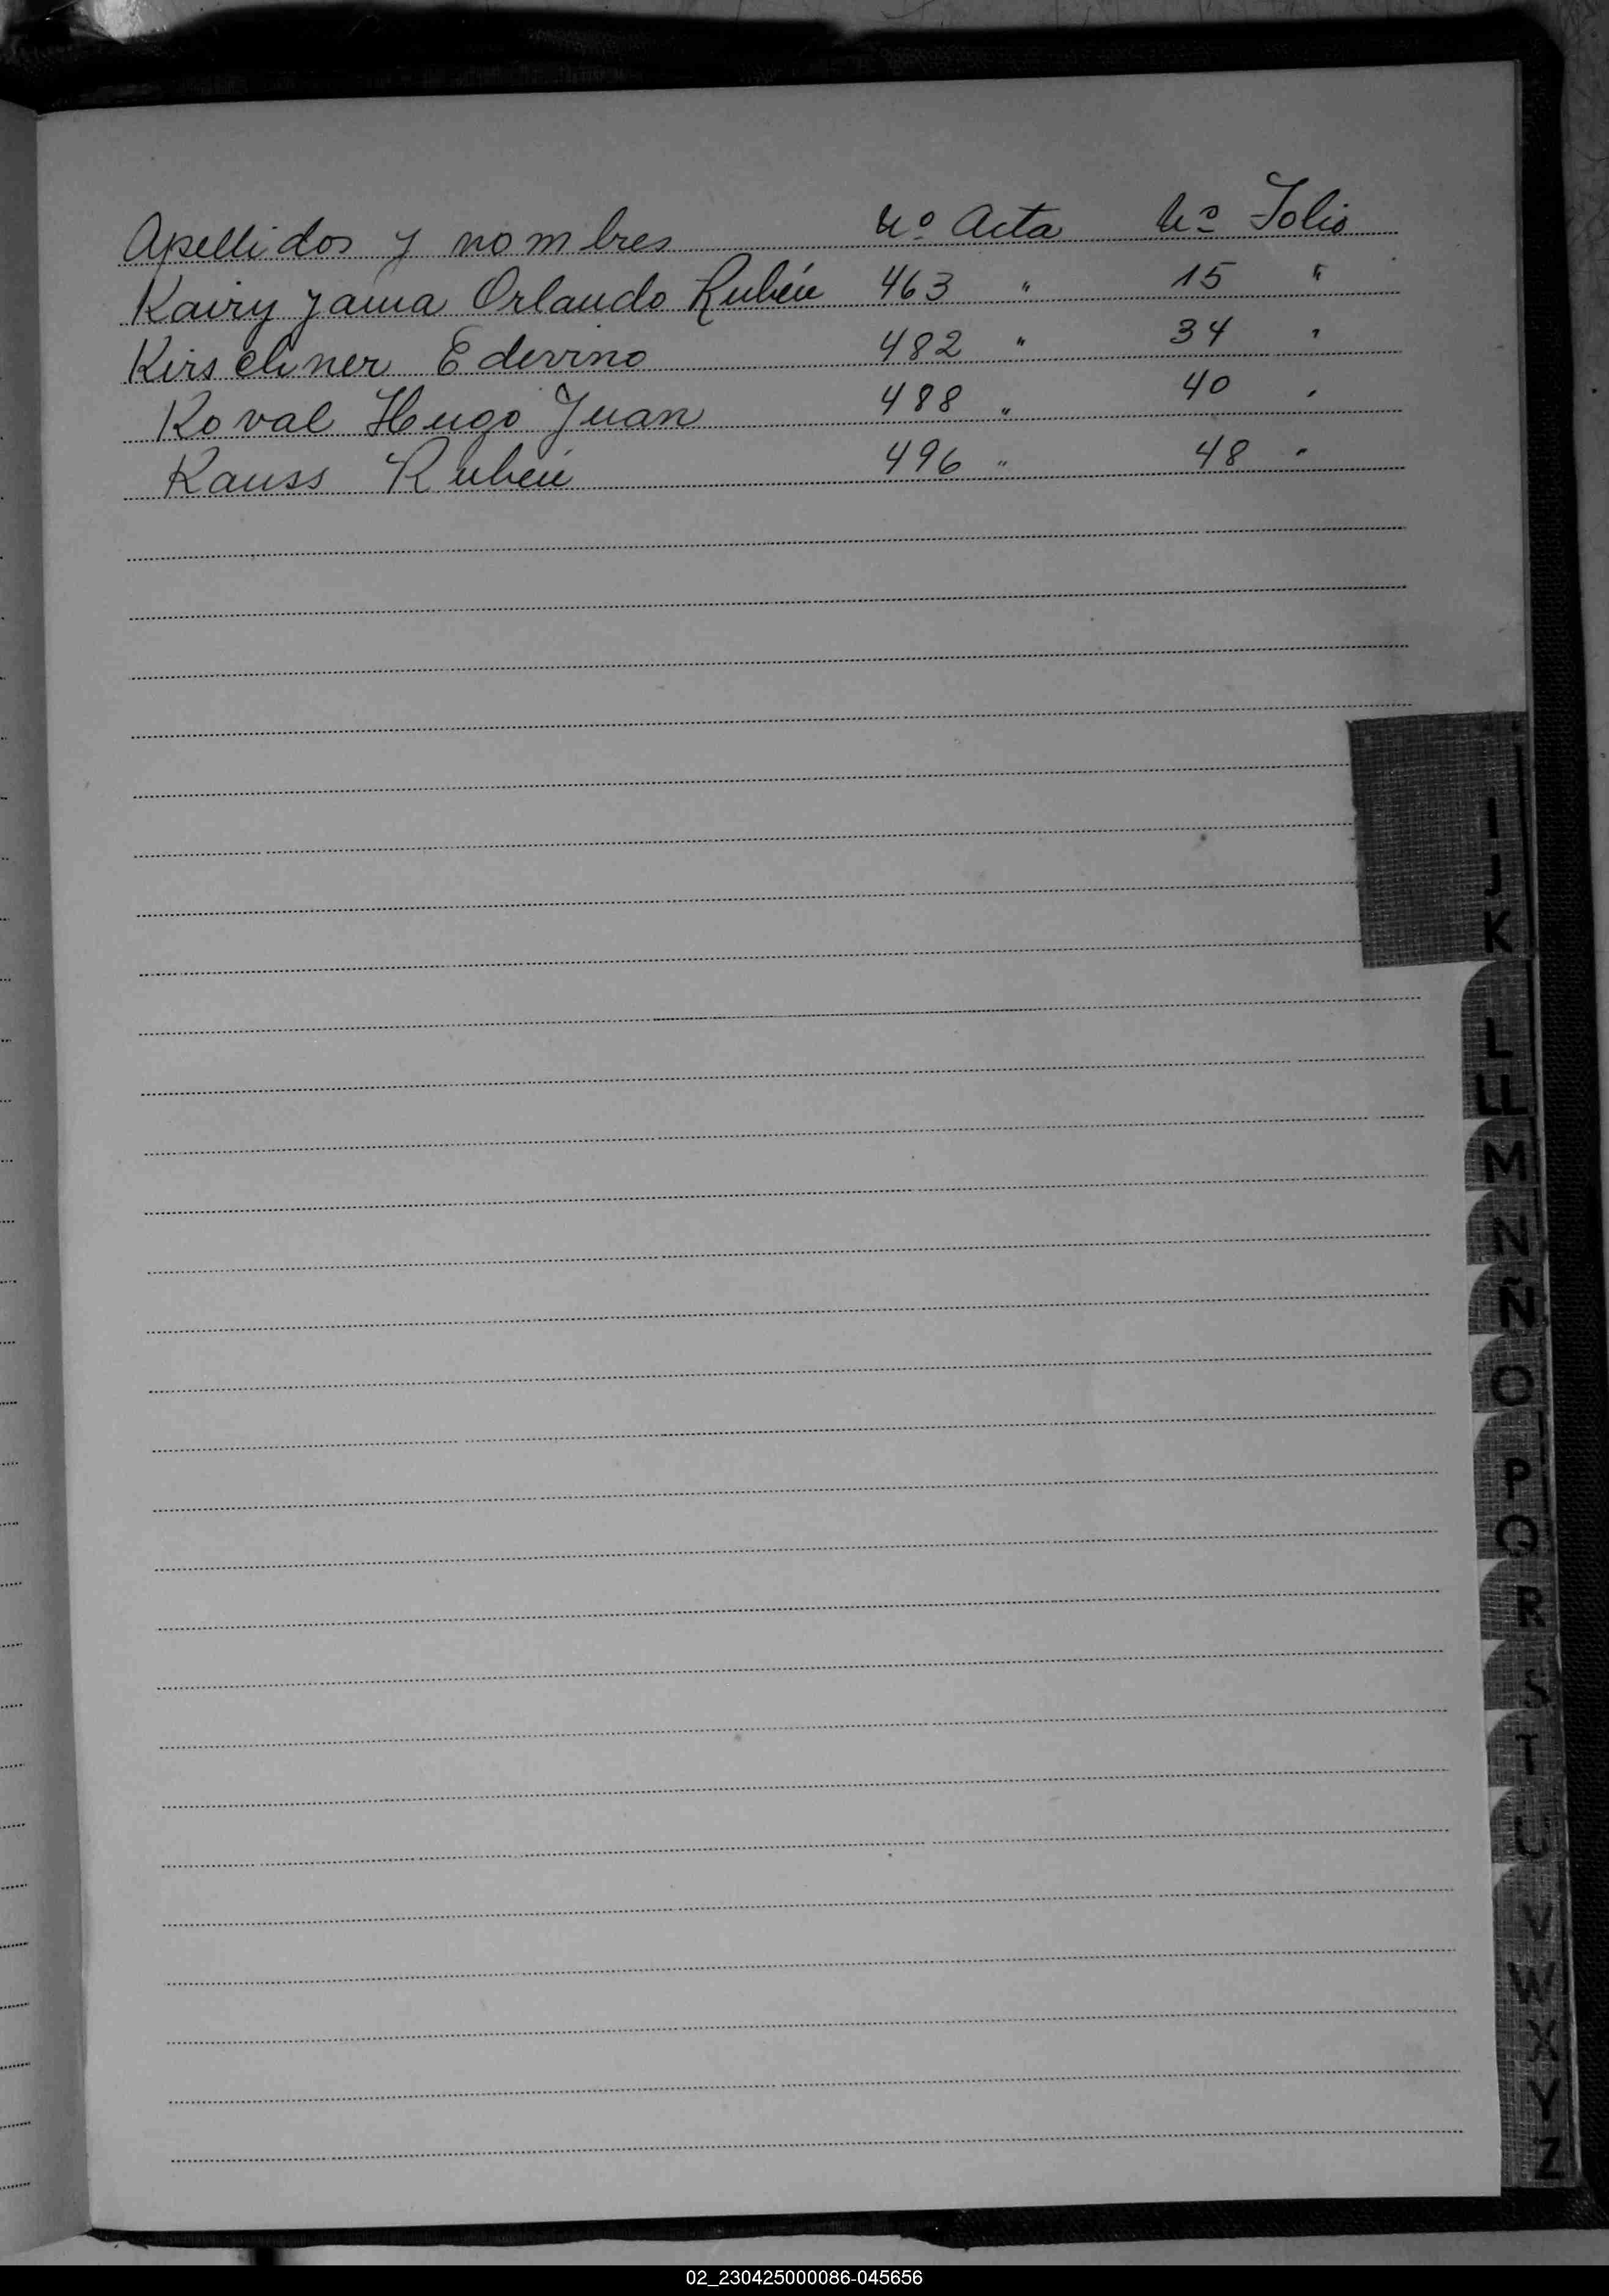 Apellidos y nombres Nº Acta Nº Folio
Kairy yama Orlando Rubén 463 " 15 "
Kirschner Edervino 482 " 34 "
Koval Hugo Juan 488 " 40 "
Kauss Rubén 496 " 48 "
I
J
K
L
LL
M
N
Ñ
O
P
Q
R
S
T
U
V
W
X
Y
Z
02_230425000086-045656